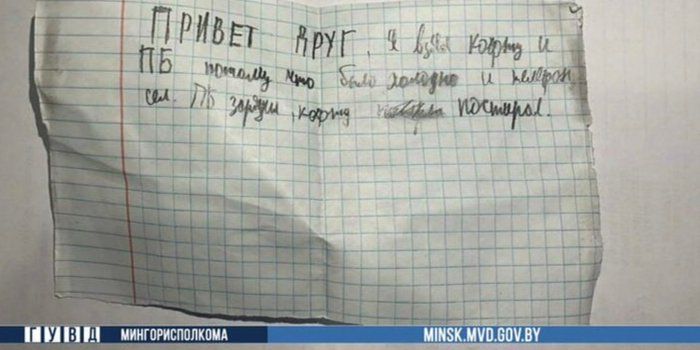 ПРИВЕТ ДРУГ. Я взял кофту и
ПБ потому что было холодно и телефон
сел. ПБ зарядил, кофту постирал.
ГУВД МИНГОРИСПОЛКОМА
MINSK.MVD.GOV.BY